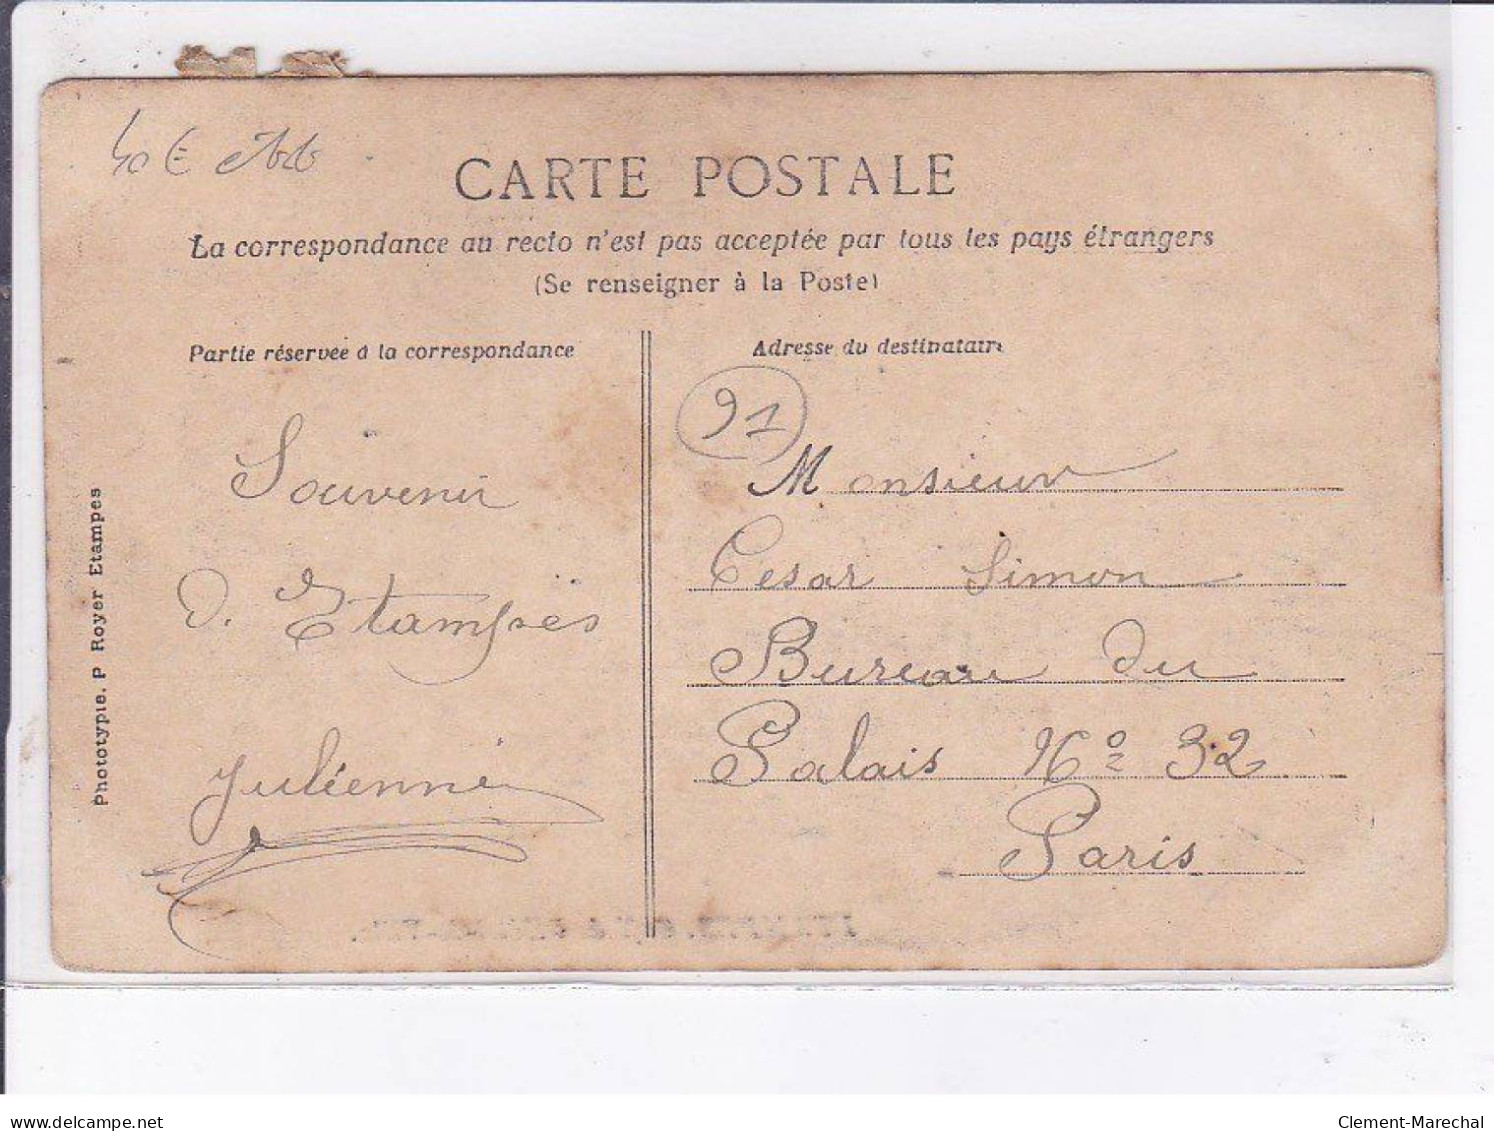 CARTE POSTALE
La correspondance au recto n'est pas acceptée par tous les pays étrangers
(Se renseigner à la Poste)
Partie réservée à la correspondance
Souvenir
D. Etampes
Julienne
Phototypie. P Royer Etampes
Adresse du destinataire
91
Monsieur
Cesar Simon
Bureau du
Palais No 32
Paris
delcampe.net
Clement-Marechal